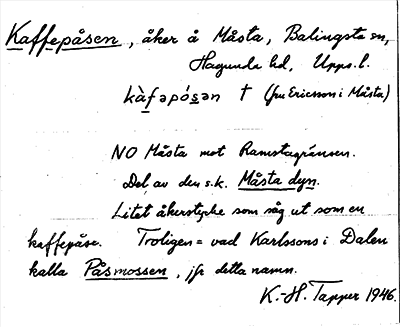 Kaffepåsen, åker å Måsta, Balingsta sn,
Hagunda hd, Upps. l.
kàfəpó̀sən † (fru Ericsson i Måsta)
NO Måsta mot Ramstagränsen.
Del av den s.k. Måsta dyn.
Litet åkerstycke som såg ut som en
kaffepåse. Troligen = vad Karlssons i Dalen
kalla Påsmossen, jfr detta namn.
K.-H. Tapper 1946.